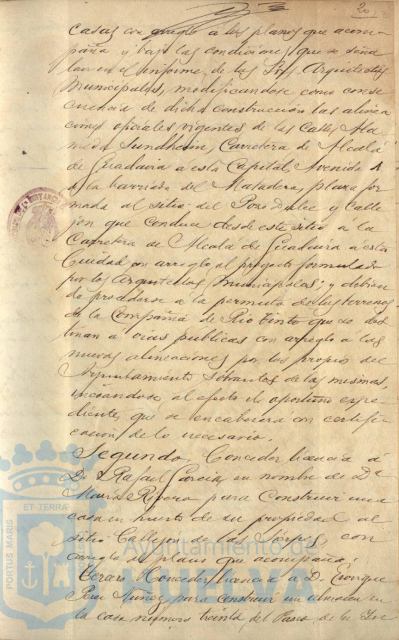 20
casas con arreglo a los planos que acom-
paña y bajo las condiciones que se seña
lan en el informe de los Srs. Arquitectos
Municipales, modificandose como conse
cuencia de dicha construccion las alinea
ciones oficiales vigentes de las Calles Ala
meda Sundheim, Carretera de Alcalá
de Guadaira a esta Capital, Avenida A
a la barriada del Matadero, plaza for
mada al sitio del Pozo dulce y Calle
jon que conduce desde este sitio a la
Carretera de Alcalá de Guadaira a esta
Ciudad con arreglo al proyecto formulado
por los Arquitectos Municipales; y debien
do procederse a la permuta de los terrenos
de la Compañia de Rio Tinto que se des
tinan a vias publicas con arreglo a las
nuevas alineaciones por los propios del
Ayuntamiento sobrantes de las mismas,
iniciandose al efecto el oportuno expe-
diente que se encabezará con certifi-
cacion de lo necesario.
Segundo. Conceder licencia á
D. Rafael Garcia, en nombre de Dª
Maria Rivero para construir una
casa en huerto de su propiedad al
sitio Callejon de las con
arreglo al plano que acompaña.
Tercero. Conceder licencia a D. Enrique
Nuñez, para construir un almacen en
la casa número treinta del Paseo de la
PORTUS MARIS
ET TERRA
Ayuntamiento de